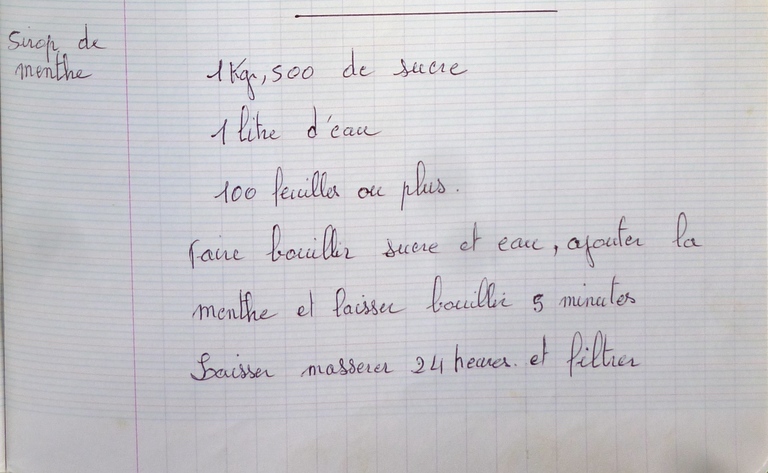 Sirop de
menthe
1Kgr,500 de sucre
1 litre d'eau
100 feuilles ou plus.
faire bouillir sucre et eau, ajouter la
menthe et laisser bouillir 5 minutes
Laisser masserer 24 heures. et filtrer